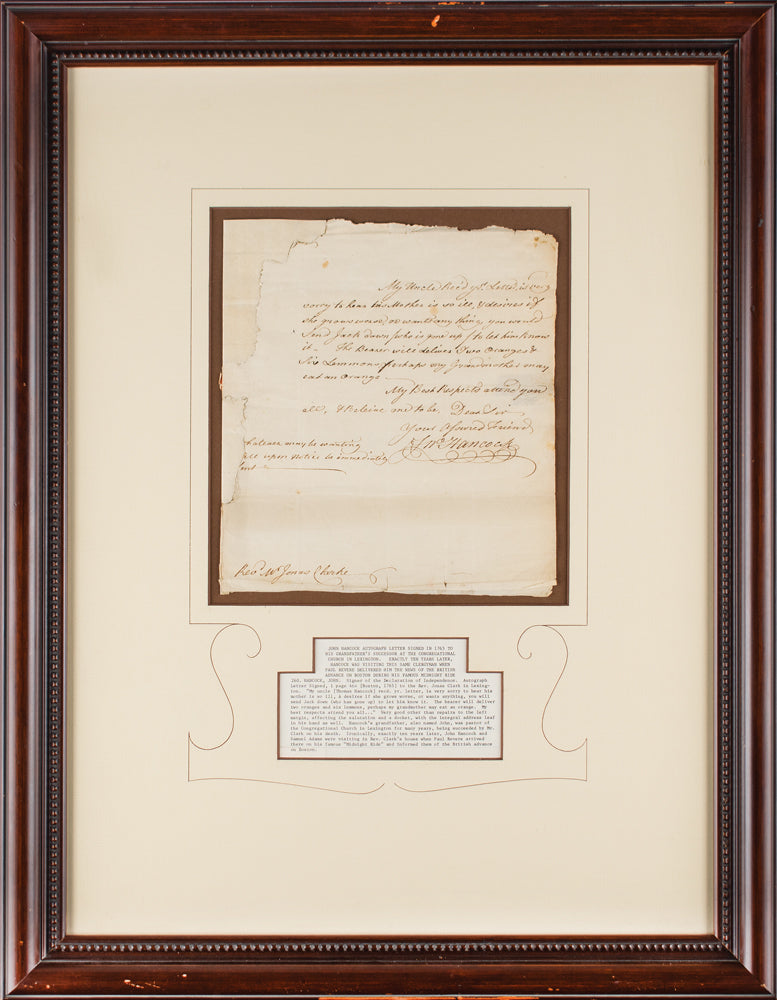 My Uncle Recd yr. Letter, is very
sorry to hear his Mother is so ill, & desires if
she grows worse, or wants any thing, you would
Send Jack down (who is gone up) to let him know
it. The Bearer will deliver Two Oranges &
Six Lemmons, perhaps my Grandmother may
eat an Orange
My Best Respects attend you
all, & Beleive me to be, Dear Sir
Your Assured Friend
Jno Hancock
may be wanting
upon notice be immediately
Revd. Mr Jonas Clarke
JOHN HANCOCK AUTOGRAPH LETTER SIGNED IN 1765 TO
HIS GRANDFATHER'S SUCCESSOR AT THE CONGREGATIONAL
CHURCH IN LEXINGTON. EXACTLY TEN YEARS LATER,
HANCOCK WAS VISITING THIS SAME CLERGYMAN WHEN
PAUL REVERE DELIVERED HIM THE NEWS OF THE BRITISH
ADVANCE ON BOSTON DURING HIS FAMOUS MIDNIGHT RIDE
260. HANCOCK, JOHN. Signer of the Declaration of Independence. Autograph
Letter Signed, 1 page 4to [Boston, 1765] to the Rev. Jonas Clark in Lexing-
ton. "My uncle [Thomas Hancock] recd. yr. letter, is very sorry to hear his
mother is so ill, & desires if she grows worse, or wants anything, you will
send Jack down (who has gone up) to let him know it. The bearer will deliver
two oranges and six lemmons, perhaps my grandmother may eat an orange. My
best respects attend you all..." Very good other than repairs to the left
margin, affecting the salutation and a docket, with the integral address leaf
in his hand as well. Hancock's grandfather, also named John, was pastor of
the Congregational Church in Lexington for many years, being succeeded by Mr.
Clark on his death. Ironically, exactly ten years later, John Hancock and
Samuel Adams were visiting in Rev. Clark's house when Paul Revere arrived
there on his famous "Midnight Ride" and informed them of the British advance
on Boston.